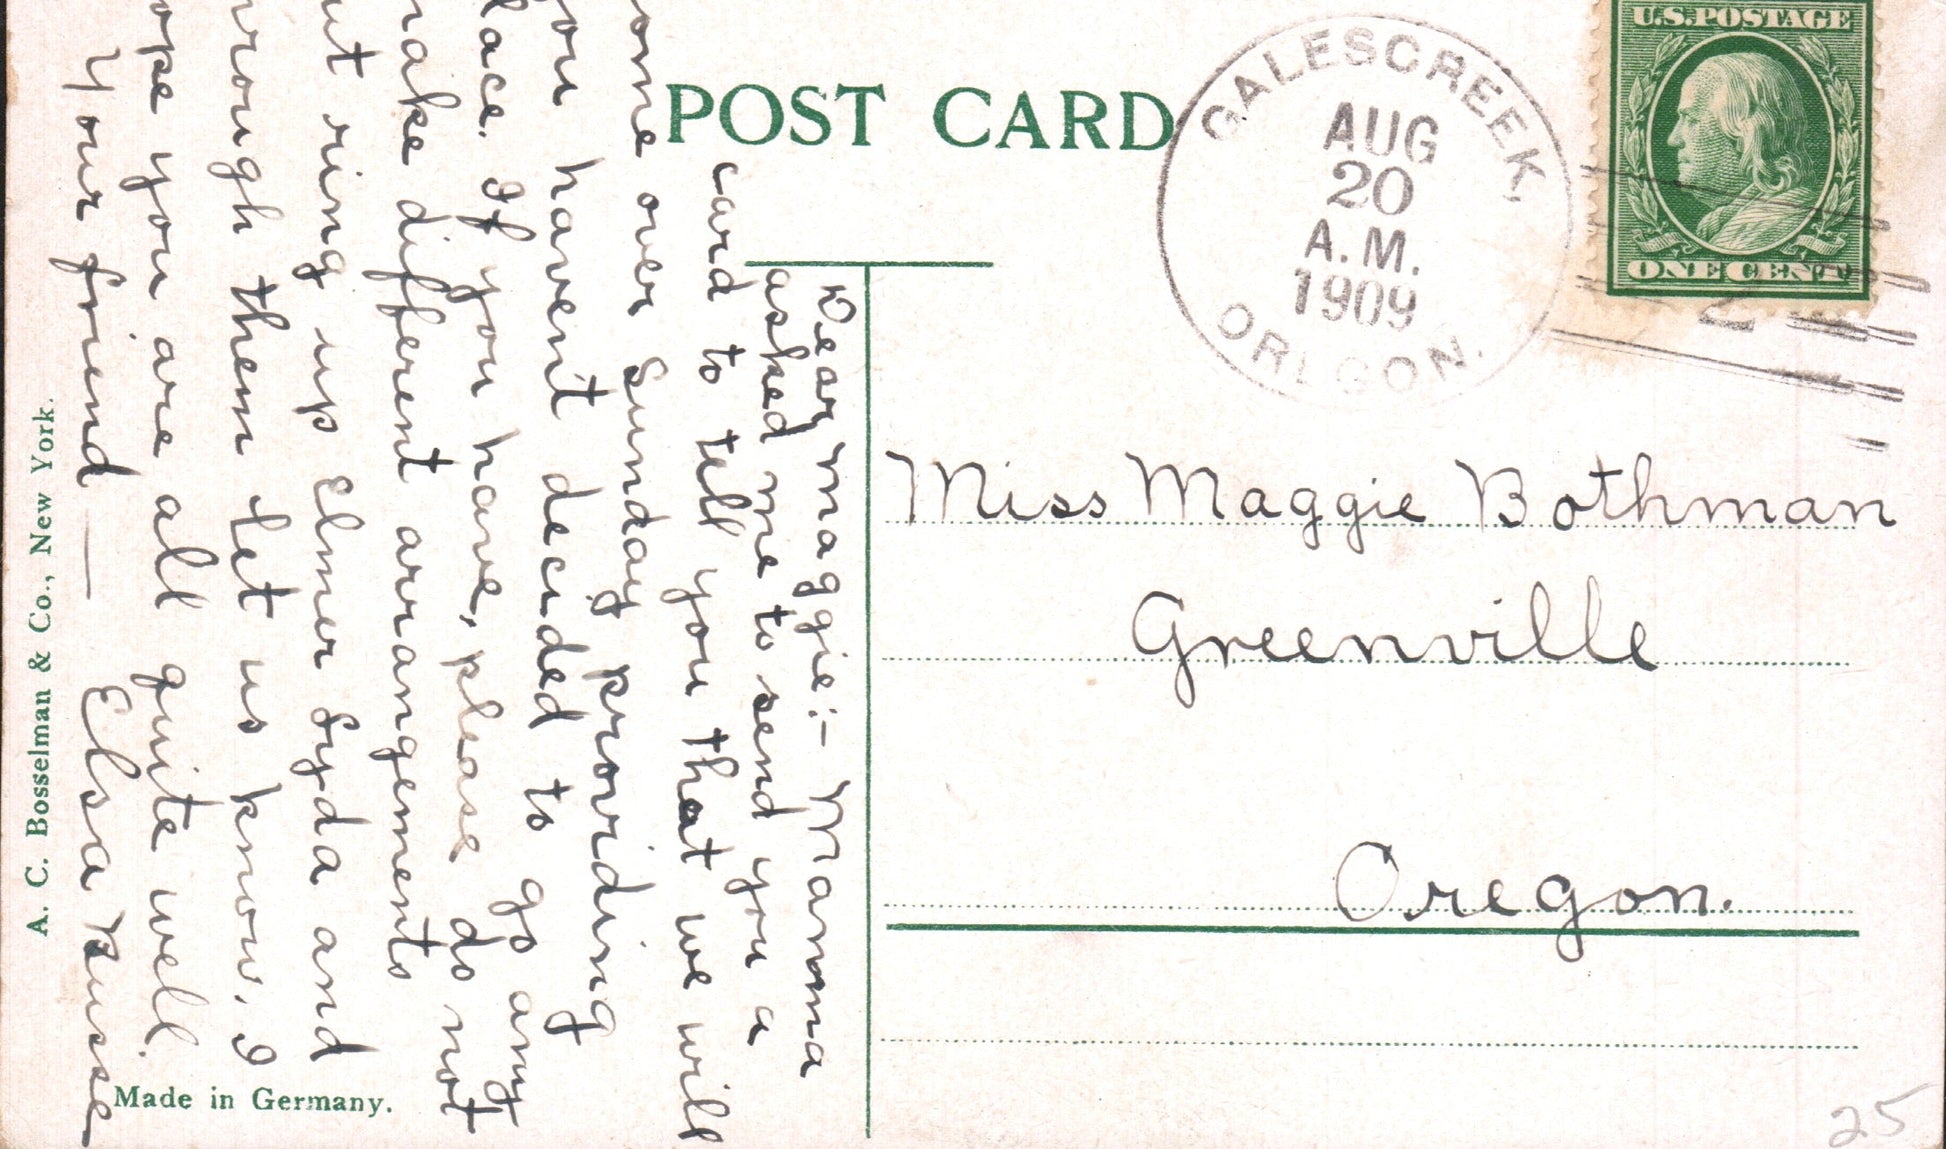 POST CARD
GALESCREEK,
AUG
20
A.M.
1909
OREGON.
U.S.POSTAGE
ONE CENT
2
Miss Maggie Bothman
Greenville
Oregon.
Dear Maggie:- Mamma
asked me to send you a
card to tell you that we will
ome over Sunday providing
you havent decided to go any
lace. If you have, please do not
make different arrangements
ut ring up Elmer Lyda and
hrough them let us know. I
ope you are all quite well.
Your friend — Elsa Busse
A. C. Bosselman & Co., New York.
Made in Germany.
25